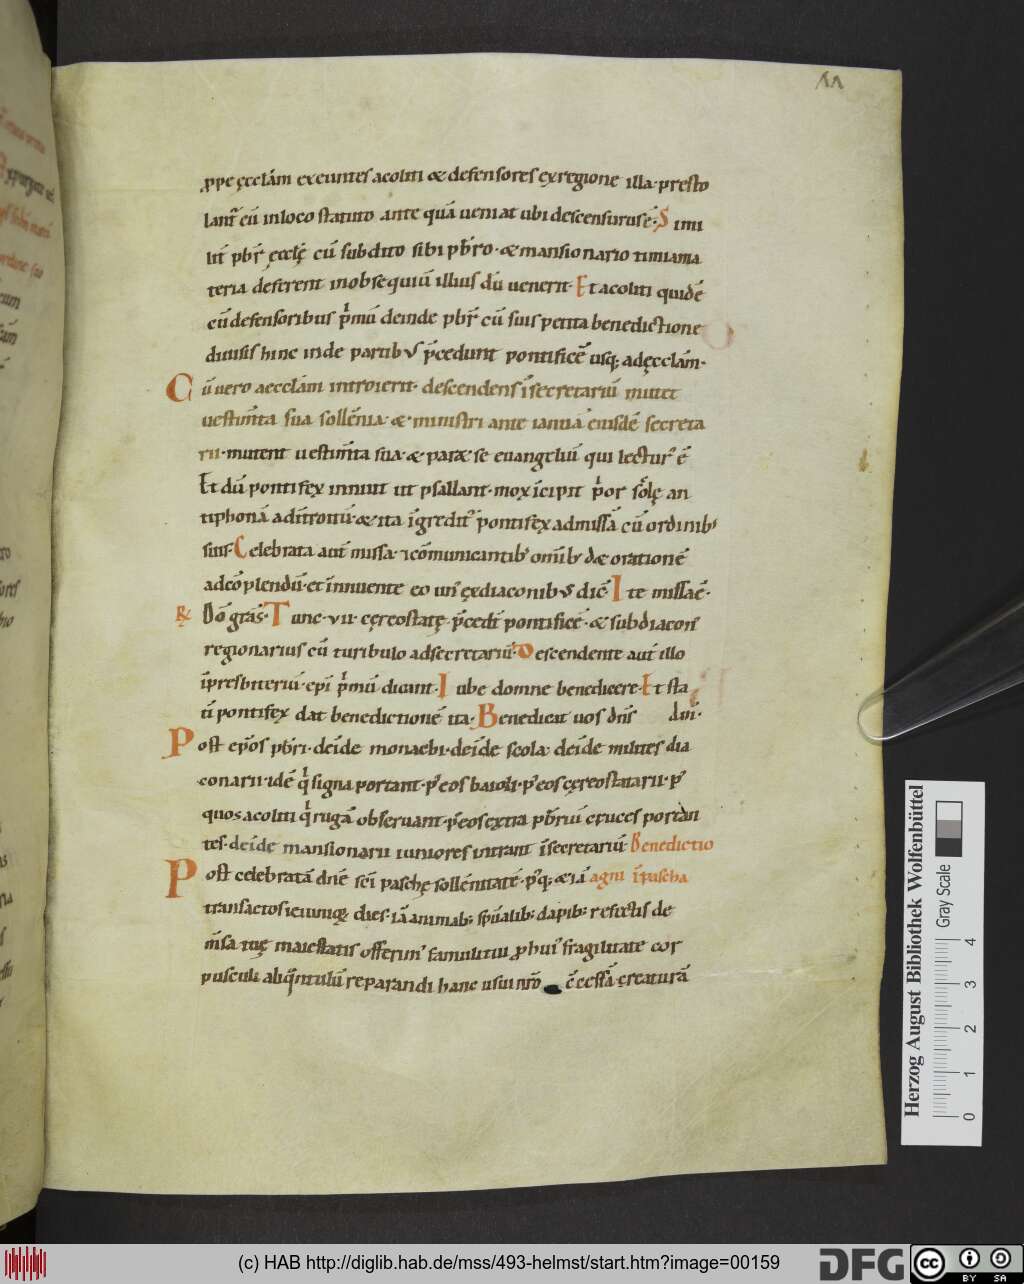 ꝓpe ęcclā̄m exeuntes acoliti & defensores ex regione illa presto
lant᷑ cū in loco statuto ante quā ueniat ubi descensurus ē. Simi
lit᷑ pb̄r ęcclę̄ cū subdito sibi pb̄ro · & mansionario timiama
teria deferent in obsequiū illius dū uenerit. Et acoliti quidē
cū defensoribus p̍mū deinde pb̄r cū suis petita benedictione
diuisis hinc inde partibus p̄cedunt pontificē usq; ad ęcclā̄m.
Cū uero aecclā̄m introierit. descendens ī secretariū mutet
uestim̄ta sua sollēnia & ministri ante ianuā eiusdē secreta
rii · mutent uestim̄ta sua · & paret se euangeliū qui lectur᷑ ē
Et dū pontifex innuit ut psallant · mox īcipit p̍or solę an
tiphonā ad ītroitū · & ita īgredit᷑ pontifex ad missā cū ordinib;
suis. Celebrata aut̄ missa · ⁊ cōmunicantib; omīb; dat orationē
ad cōplendū · et innuente eo un᷑ ę diaconibus dic̄. Ite missa ē.
℟ Dō grās. Tunc · vii · cęreostatę p̄cedt̄ pontificē · & subdiacon᷑
regionarius cū turibulo ad secretariū. Descendente aut̄ illo
ī presbiteriū · epī p̍mū dicunt. Iube domne benedicere. Et sta
tī pontifex dat benedictionē ita. Benedicat uos dn̄s dn̄i.
Post epōs pb̄ri · deīde monachi · deīde scola · deīde milites dia
conarii · idē q̍ signa portant · p᷑ eos baioli · p᷑ eos cęreostatarii · p᷑
quos acoliti q̍ rugā obseruant · p᷑ eos extra pb̄riū cruces portan
tes · deīde mansionarii iuniores intrant ī secretariū. Benedictio
Post celebratā dn̄ę sc̄i paschę sollēnitatē · p᷑q; & iā agni ī pascha
transactos ieiuniiq; dies · iā animab; spū̄alib; dapib; refectis de
m̄sa tuę maiestatis offerim᷑ famuli tui ꝓ hui᷑ fragilitate cor
pusculi aliq̄ntulū reparandi hanc usui nr̄o cēcessā creaturā
Herzog August Bibliothek Wolfenbüttel
Gray Scale
0 1 2 3 4
(c) HAB http://diglib.hab.de/mss/493-helmst/start.htm?image=00159
DFG
cc BY SA